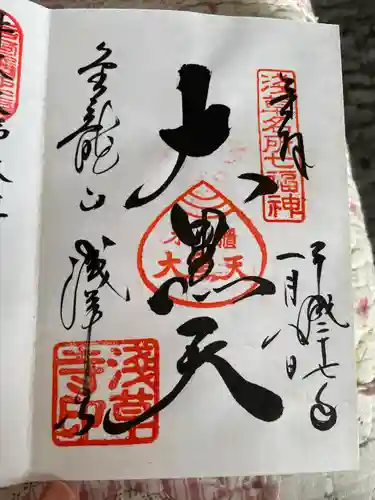 奉拝
浅草名所七福神
平成二十七年
一月八日
大黒天
米櫃
大 天
金龍山
浅草寺
浅草
寺印